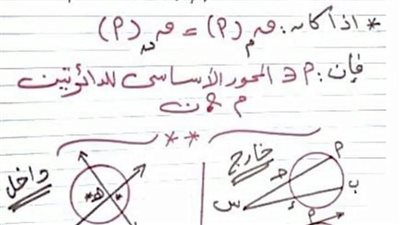 * اذا كان: قہ م (P) = قہ ن (P)
فإن: P ∈ المحور الأساسى للدائرتين
م ، ن
* *
داخل
خارج
P
ج
ب
س
ء
هـ